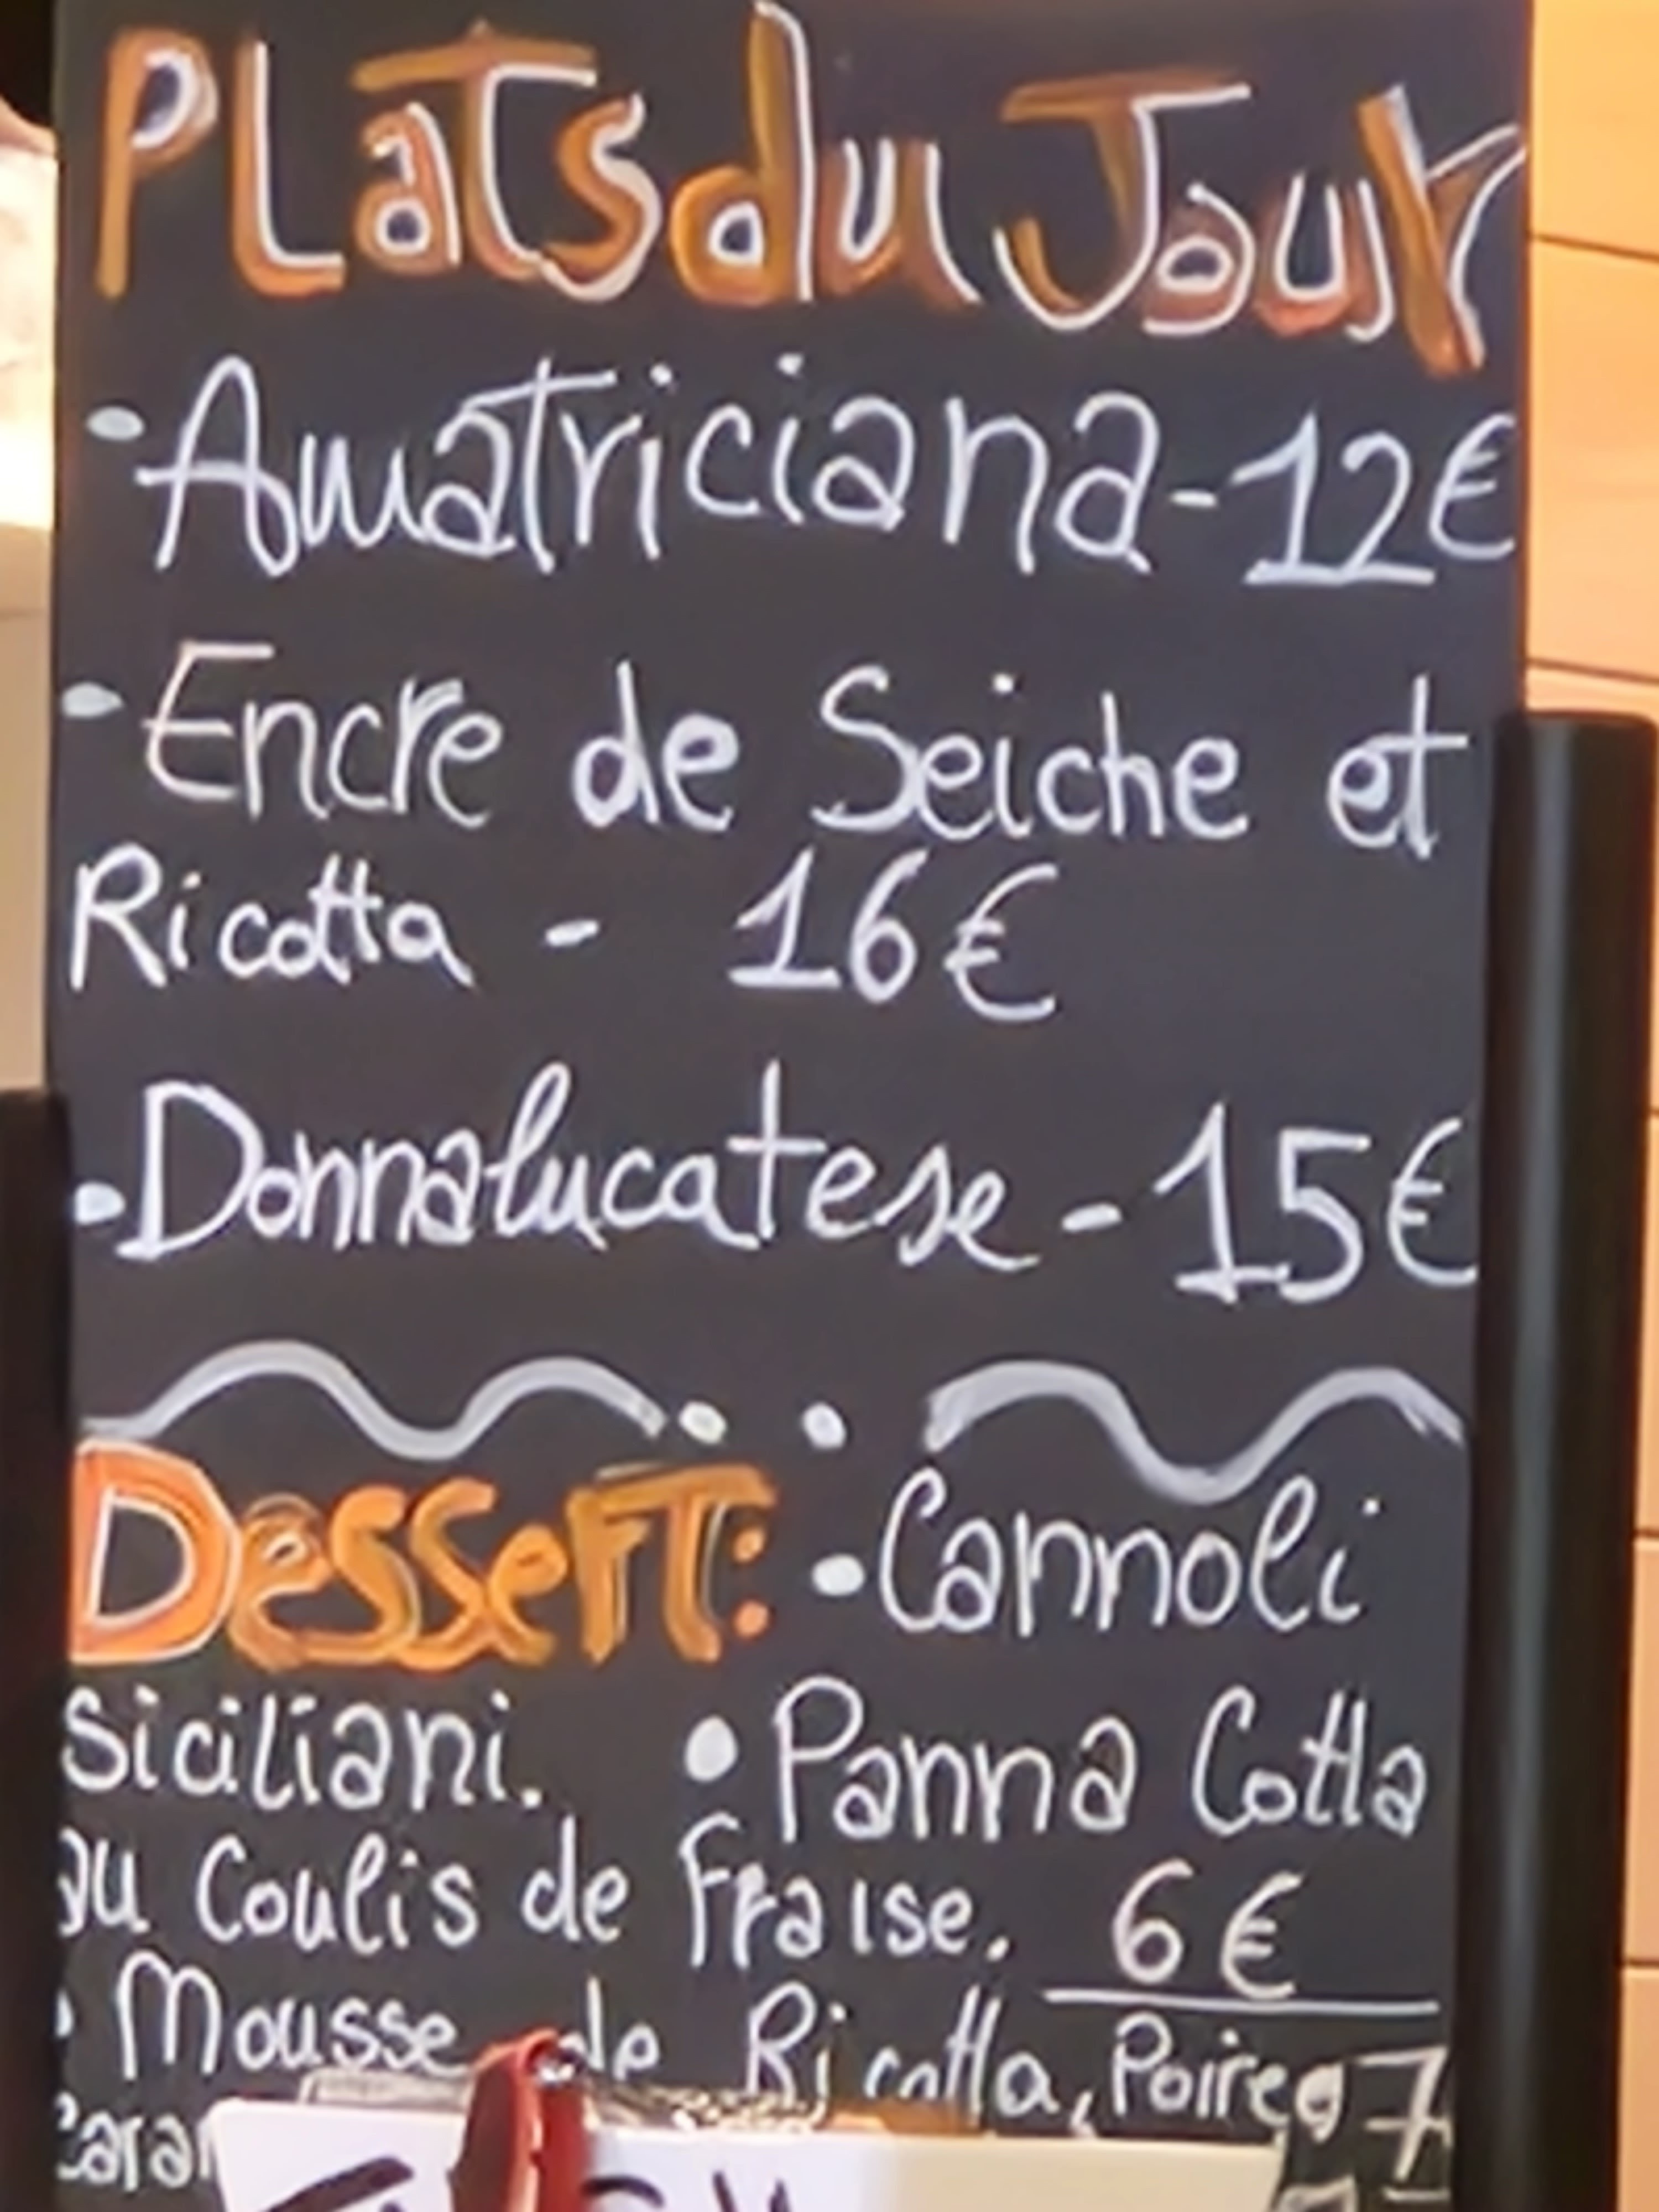 Plats du Jour
• Amatriciana - 12€
• Encre de Seiche et
Ricotta - 16€
• Donnalucatese - 15€
Dessert: • Cannoli
Siciliani. • Panna Cotta
au Coulis de Fraise. 6€
• Mousse de Ricotta, Poire